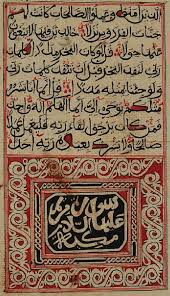 الذين امنوا وعملوا الصالحات كانت لهم
جنات الفردوس نزلا خالدين فيها لا يبغون
عنها حولا قل لو كان البحر مدادا لكلمات
ربي لنفد البحر قبل ان تنفد كلمات ربي
ولو جئنا بمثله مددا قل انما انا بشر
مثلكم يوحى الي انما الهكم اله واحد
فمن كان يرجوا لقاء ربه فليعمل عملا
صالحا ولا يشرك بعبادة ربه احدا
سورة مريم
عليها
مكية